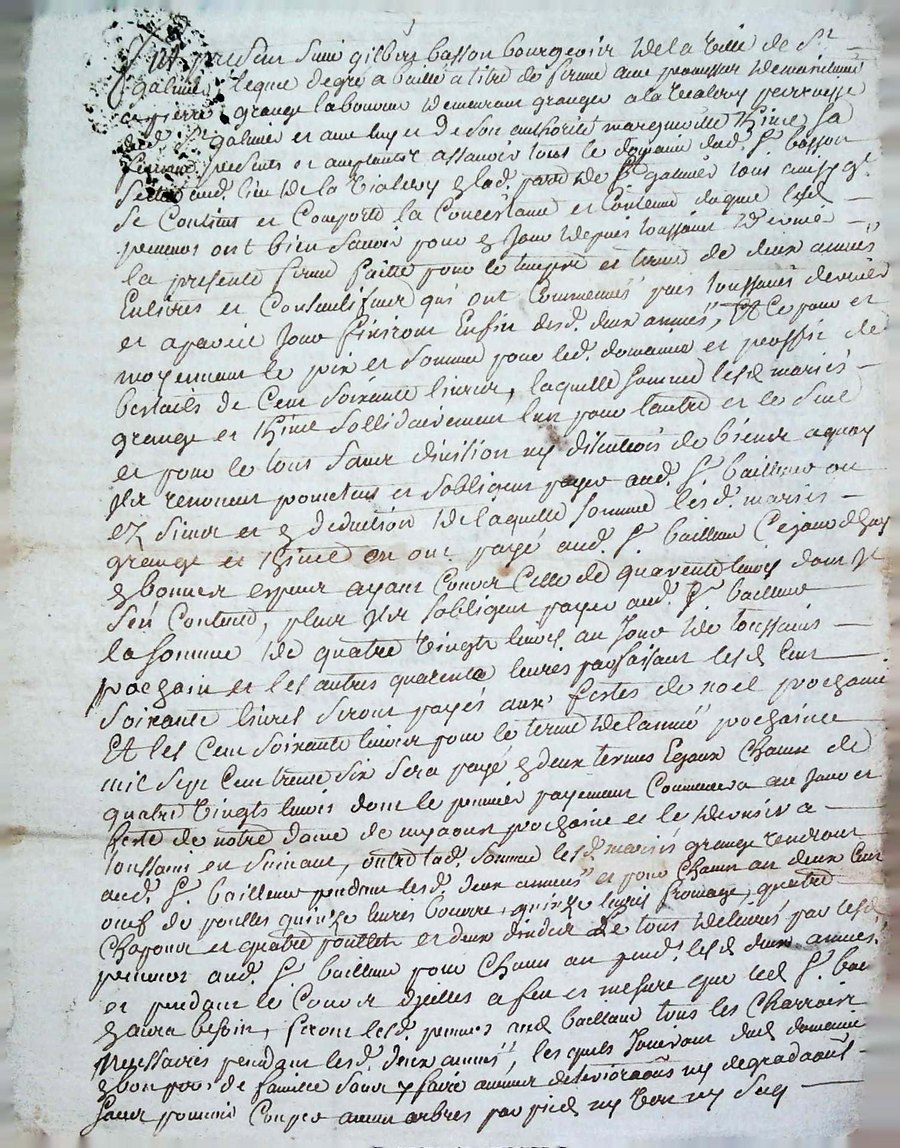 fut present Sieur gilbert basson bourgeois de la Ville de St
galmier lequel degré a baillé a titre de ferme avec promesse de maintenir
a pierre grange laboureur demeurant granger a la
dud. St galmier et avec luy et de son authorité marguerite Thiné Sa
femme presents et acceptants assavoir tous le domaine dud. Sr basson
Scitué aud. lieu de la & lad. parr de St galmier tous ainsy qt
Se Contient et Comporte la Consistance et Contenu duquel lesd
preneurs ont bien Savoir pour & Jouir depuis toussaint dernié
la presente ferme faitte pour le temps et terme de deux années
Entieres et Consecutifves qui ont Commencés puis toussaints dernier
et a pareil Jour finiront Enfin desd. deux années, Et Ce pour et
moyennant le prix et Somme pour led. domaine et proffit de
bestails de Cent Soixante livres, laquelle Somme lesd mariés
grange et Thiné Sollidairement l'un pour l'autre et le Seul
et pour le tous Sans division ny discution de biens a quoy
Ils renoncent promettent et Sobligent payer aud. Sr. bailleur ou
et & deduction de laquelle Somme lesd. mariés
grange et Thiné en ont payé aud. Sr. bailleur Cejourdhuy
& bonnes especes ayant Cours Celle de quarente livres dont Il
S'en Contente, plus Ils Sobligent payer aud. Sr bailleur
la Somme de quatre Vingts livres au Jour de toussaints
prochain et les autres quarente livres parfaisant lesd Cent
Soixante livres Seront payés aux festes de noel prochaine
Et les Cent Soixante livres pour le terme de lannée prochaine
mil Sept Cent trente Six Sera payé & deux termes Egaux Chacun de
quatre Vingts livres dont le premier payement Commencera au Jour et
feste de notre dame de myaoust prochaine et le dernier a
toussaint en Suivant, outre lad. Somme lesd. mariés grange rendront
aud. Sr. bailleur pendant lesd. deux années et pour Chacun an deux Cent
oeuf de poulles quinze livres beurre, quinze livres fromage, quatre
Chapons et quatre poullets et deux dindes Le tous delivré par lesd
preneurs aud. Sr. bailleur pour Chacun an pend. lesd deux années
et pendant le Cours dicelles a feur et mesure que led Sr. bail
& aura besoin, feront lesd. preneurs aud bailleur tous les Charrois
Necessaires pendant lesd. deux années, lesquels Jouiront dud domaine
& bon pere de famille Sans y faire aucune deteriorations ny degradaons
Sans pouvoir Couper aucun arbres par pied ny ny Secq